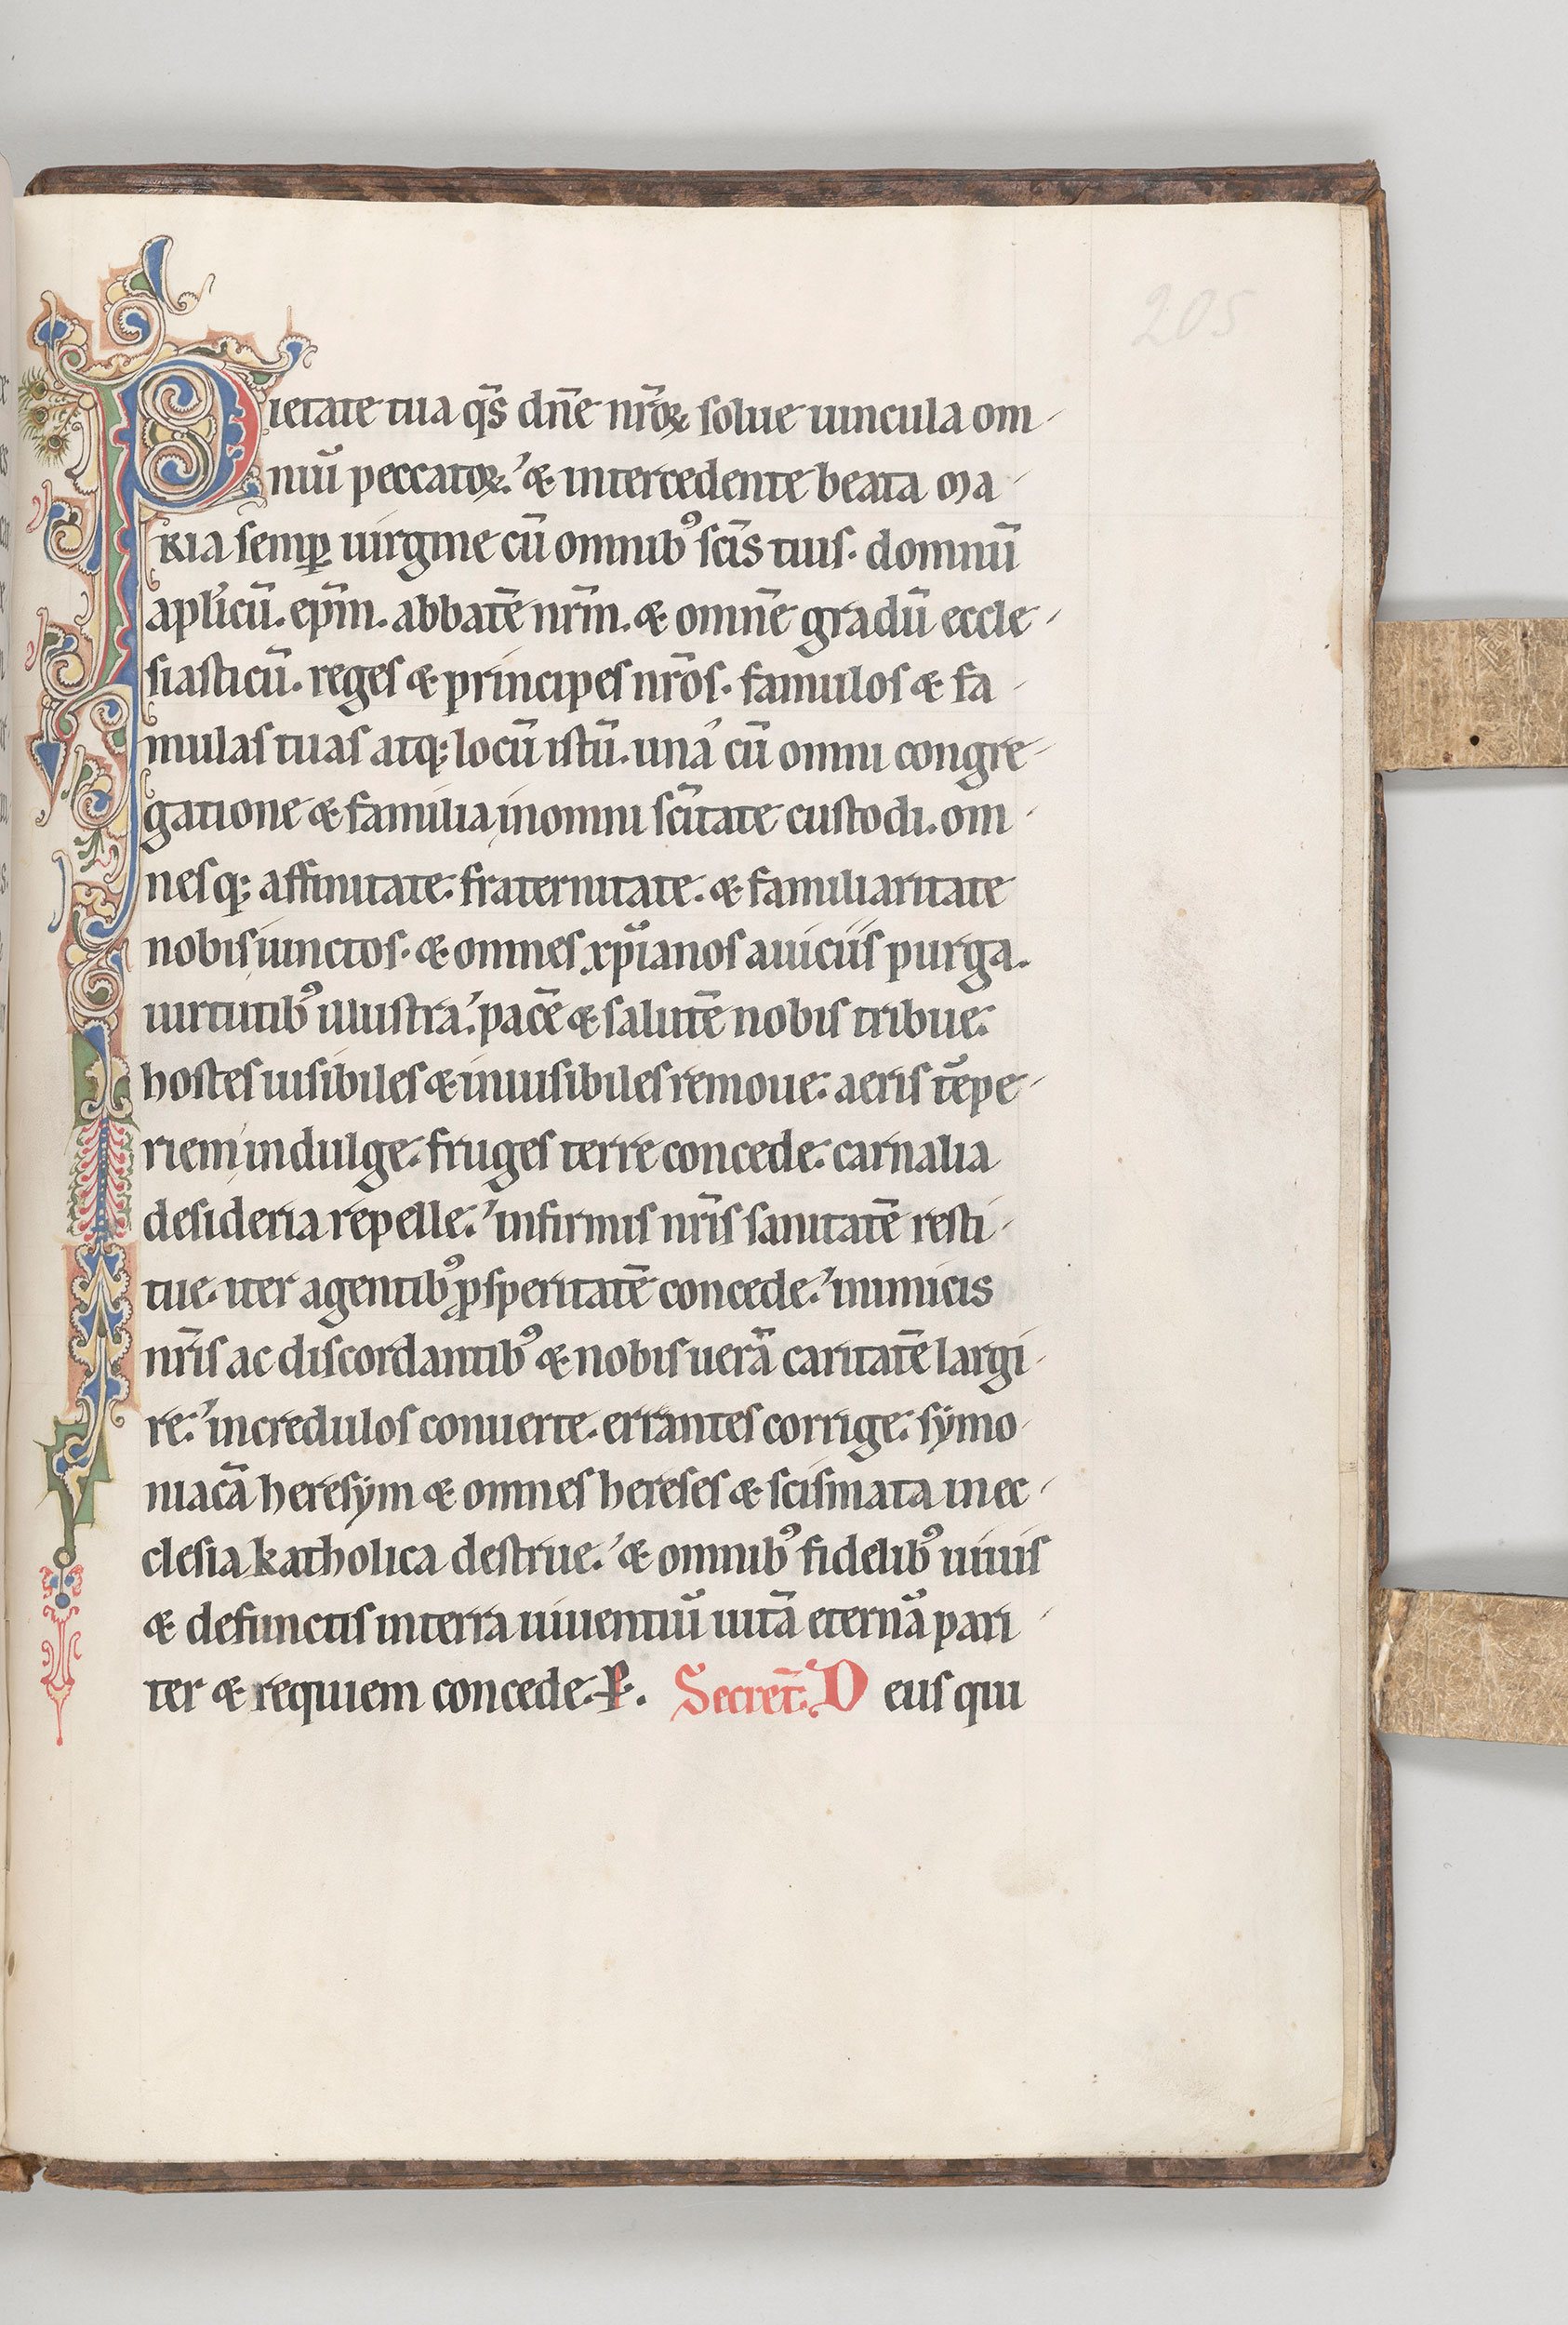 205
Pietate tua q̄s dn̄e nr̄oꝝ solue uincula om-
niū peccatoꝝ. & intercedente beata Ma-
Ria semꝑ uirgine cū omnibꝰ sc̄is tuis. domnū
apl'icū. ep̄m. abbatē nr̄m. & omnē gradū eccle-
siasticū. reges & principes nr̄os. famulos & fa-
mulas tuas atq; locū istū. una cū omni congre-
gatione & familia in omni sc̄itate custodi. om-
nesq; affinitate. fraternitate. & familiaritate
nobis iunctos. & omnes xp̄ianos a uiciis purga.
uirtutibꝰ illustra. pacē & salutē nobis tribue.
hostes uisibiles & inuisibiles remoue. aeris tēpe-
riem indulge. fruges terre concede. carnalia
desideria repelle. infirmis nr̄is sanitatē resti-
tue. iter agentibꝰ ꝓsperitatē concede. inimicis
nr̄is ac discordantibꝰ & nobis uerā caritatē largi-
re. incredulos conuerte. errantes corrige. sẏmo-
niacā heresẏm & omnes hereses & scismata in ec-
clesia katholica destrue. & omnibꝰ fidelibꝰ uiuis
& defunctis in terra uiuentiū uitā eternā pari-
ter & requiem concede. P. Secret. Deus qui